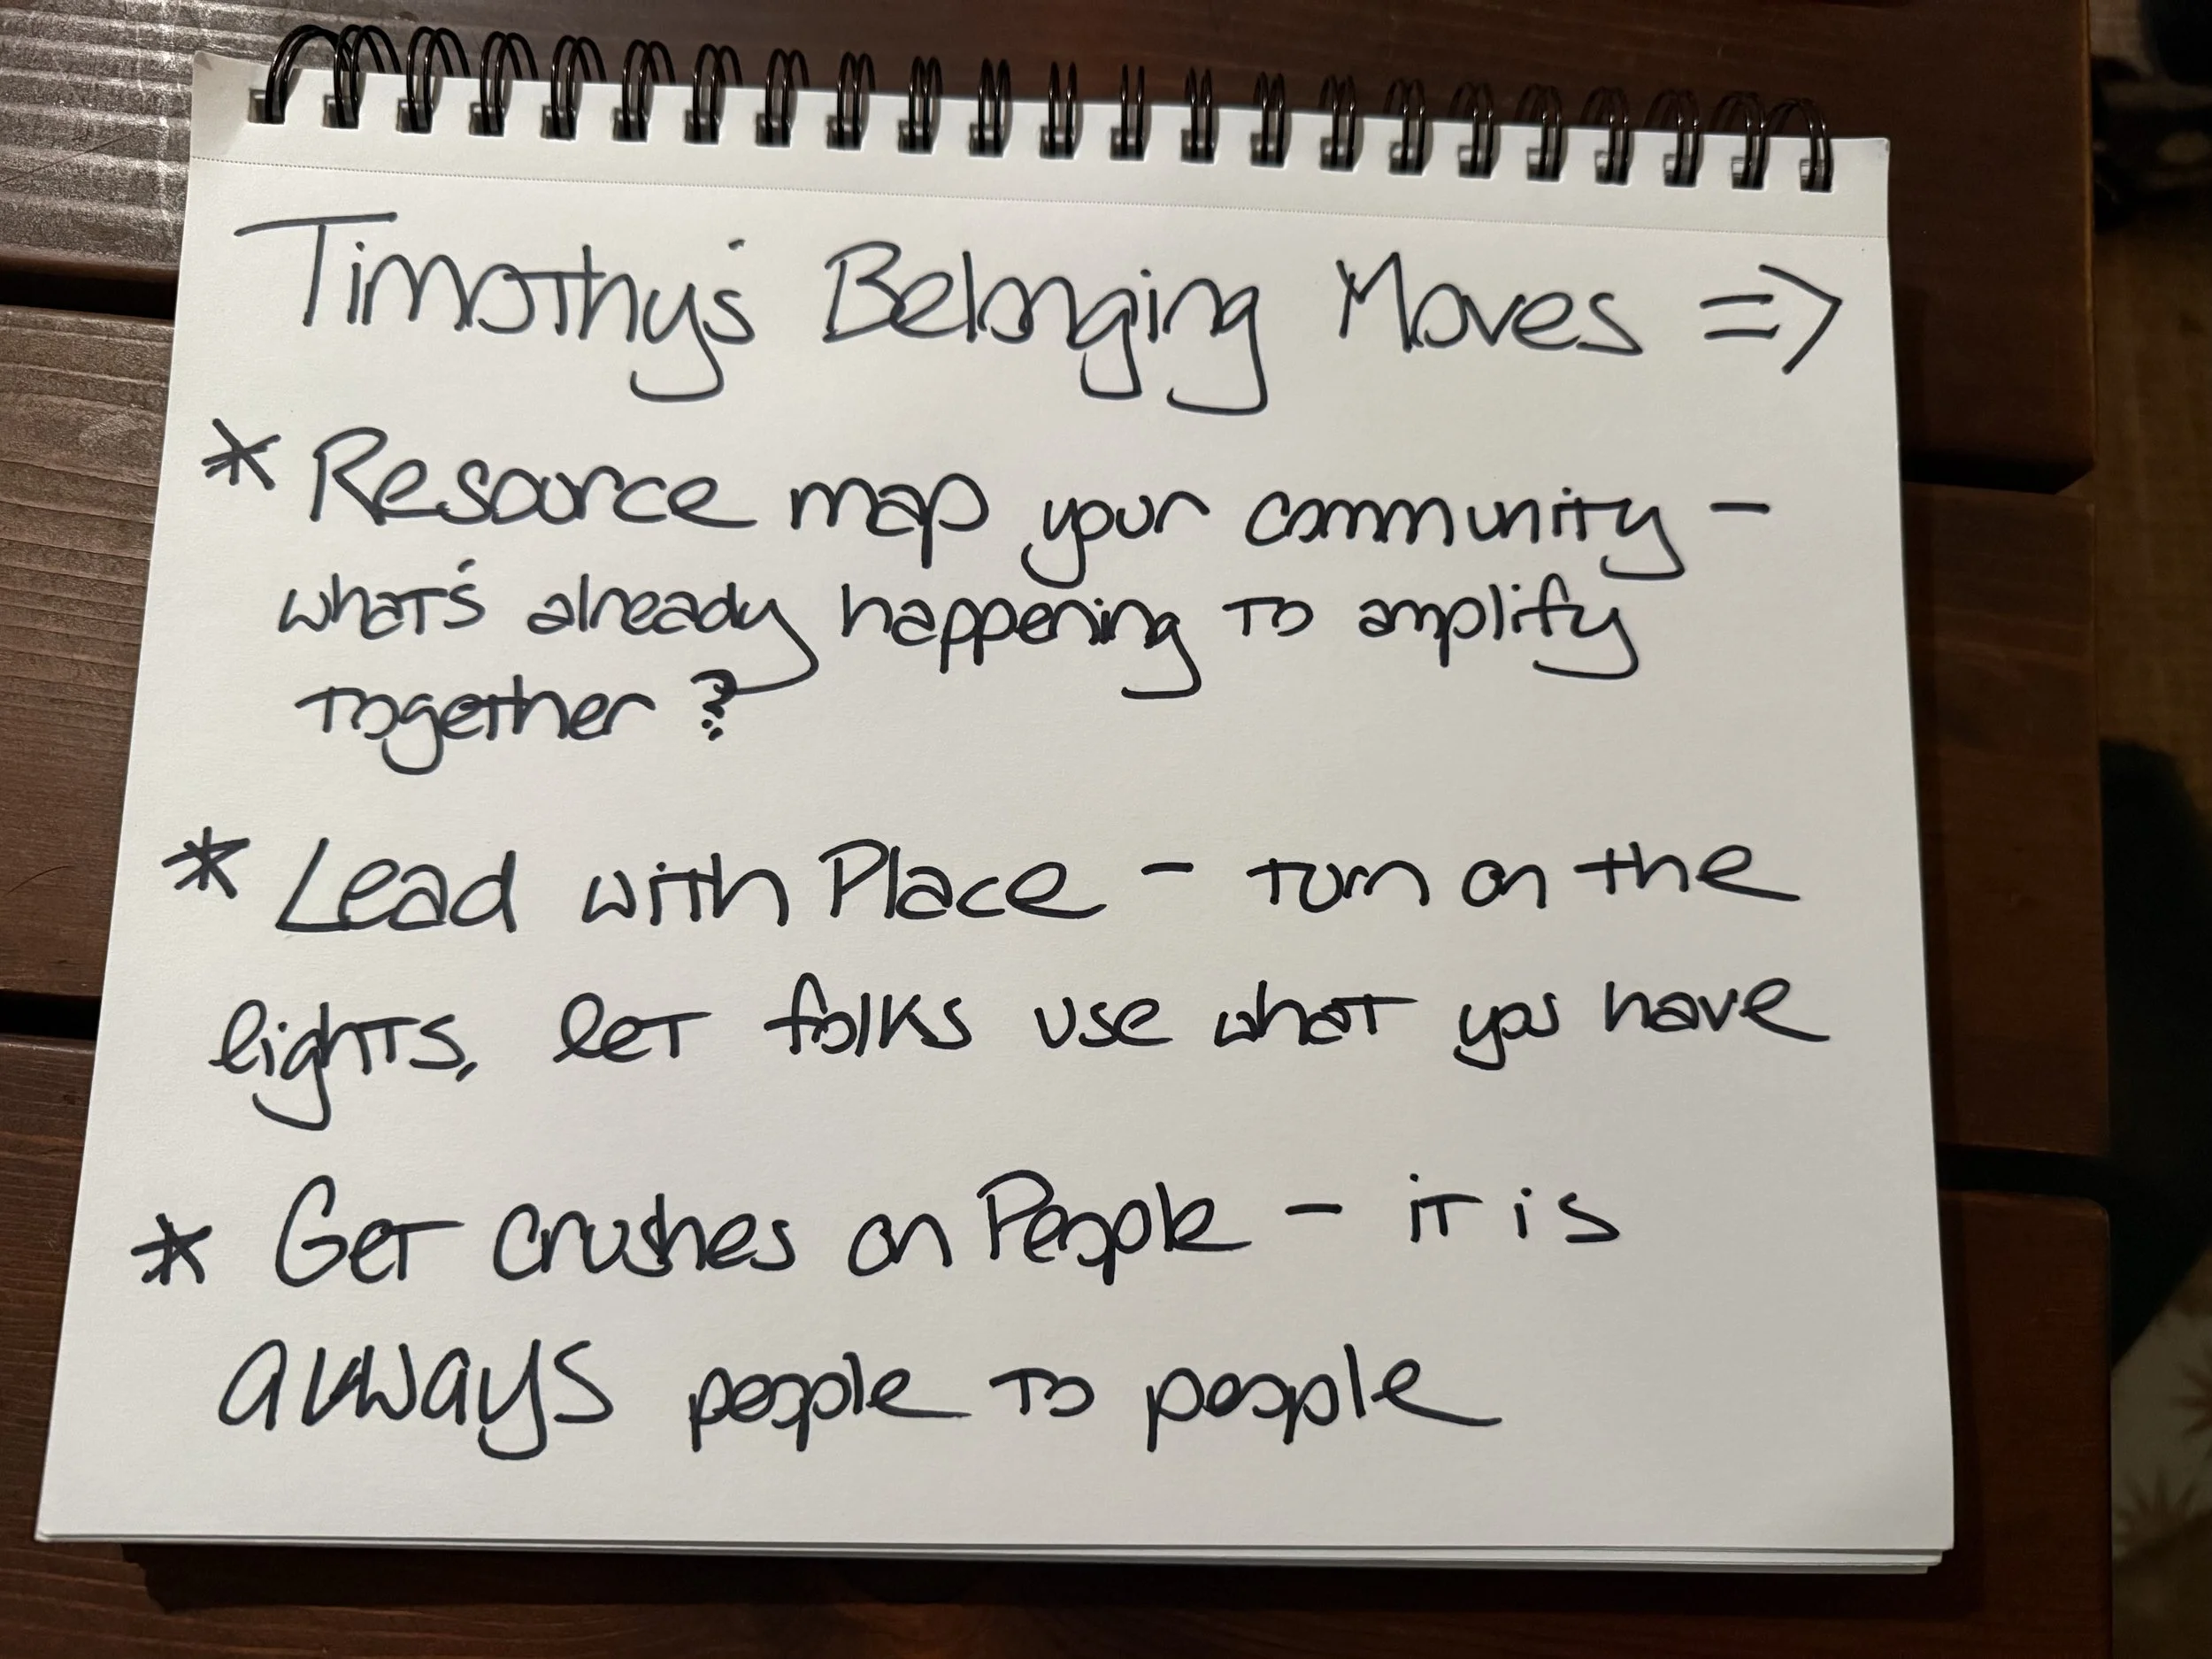 Timothy's Belonging Moves =>
* Resource map your community -
what's already happening to amplify
together?
* Lead with Place - turn on the
lights, let folks use what you have
* Get crushes on People - it is
always people to people